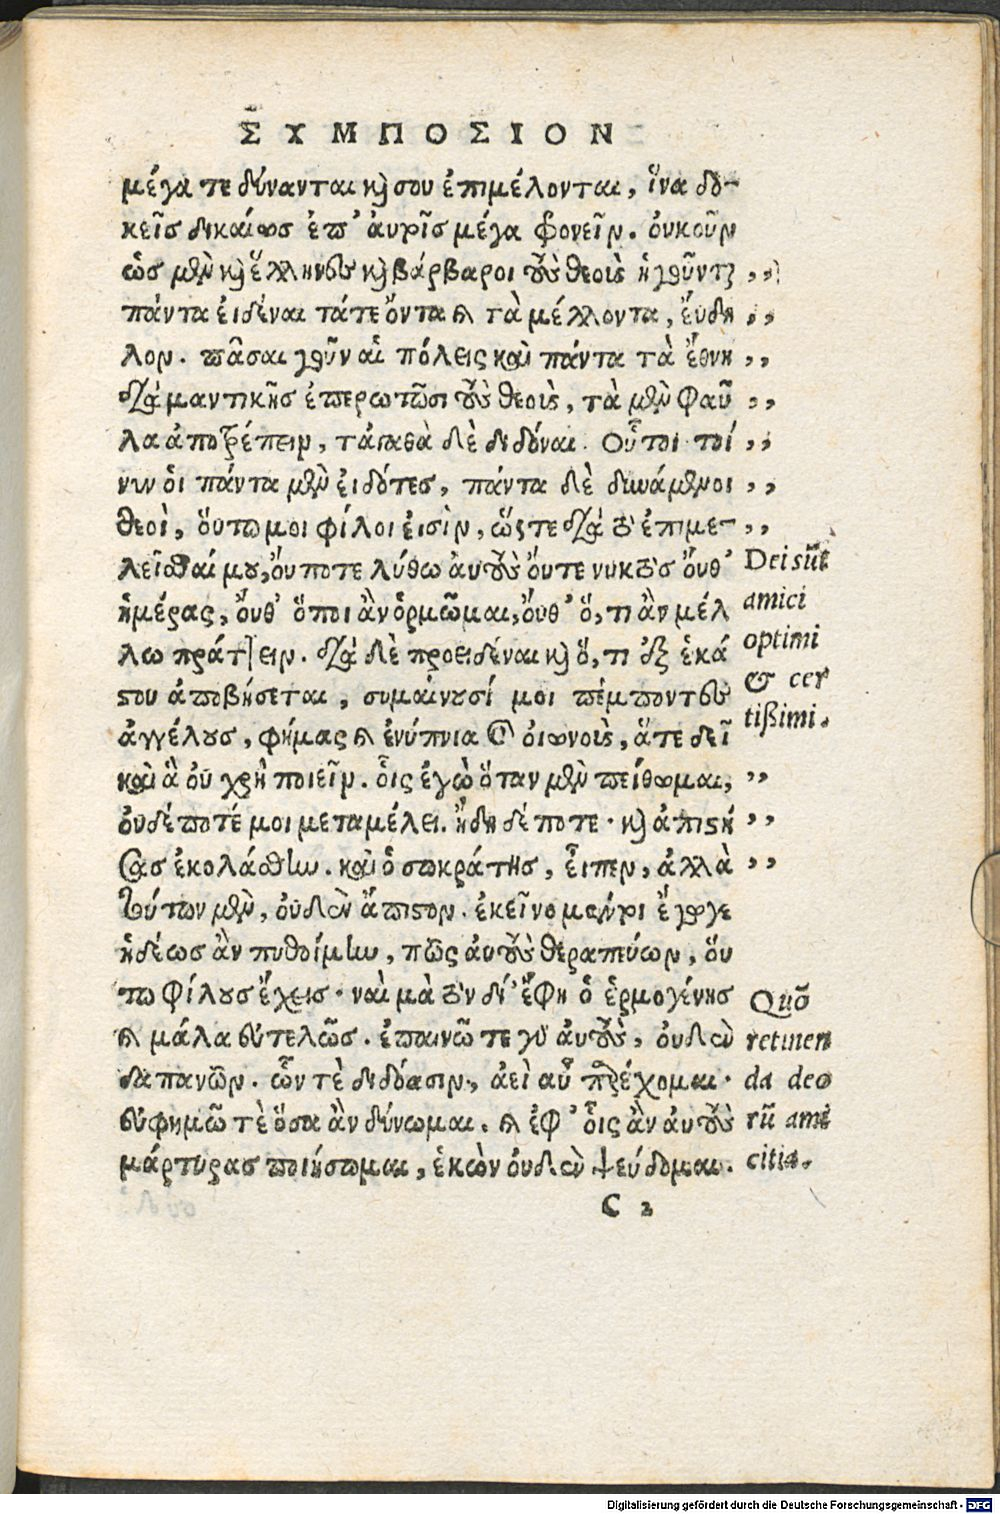 ΣΥΜΠΟΣΙΟΝ
μέγα τε δύνανται κὶ σου ἐπιμέλονται, ἵνα δο-
κεῖς δικαίως ἐπ' ἀυτοῖς μέγα φρονεῖν. ὀυκοῦν
ὡς μὲν κὶ ἕλληνες κὶ βάρβαροι τοὺς θεοὺς ἡγοῦντ ,,
πάντα ἐιδέναι τάτε ὄντα καὶ τὰ μέλλοντα, ἔυδη ,,
λον. πᾶσαι γοῦν αἱ πόλεις καὶ πάντα τὰ ἔθνη ,,
διὰ μαντικῆς ἐπερωτῶσι τοὺς θεοὺς, τὰ μὲν φαῦ ,,
λα ἀποτρέπειν, τἀγαθὰ δὲ διδόναι. Οὗτοι τοί ,,
νυν ὁι πάντα μὲν ἐιδότες, πάντα δὲ δυνάμενοι ,,
θεοὶ, ὅυτω μοι φίλοι ἐισὶν, ὥςτε διὰ τὸ ἐπιμε- ,,
λεῖσθαί μου, ὄυποτε λύθω ἀυτοὺς ὄυτε νυκτὸς ὄυθ'
ἡμέρας, ὄυθ' ὅποι ἂν ὁρμῶμαι, ὄυθ' ὅ,τι ἂν μέλ
λω πράττειν. διὰ δὲ προειδέναι κὶ ὅ,τι ἐξ ἑκά
στου ἀποβήσεται, συμαίνουσί μοι πέμποντες
ἀγγέλους, φήμας καὶ ἐνύπνια καὶ ὀιωνοὺς, ἅτε δεῖ
καὶ ἃ ὀυ χρὴ ποιεῖν. οἷς ἐγὼ ὅταν μὲν πείθωμαι, ,,
ὀυδέποτέ μοι μεταμέλει. ἤδη δέ ποτε κὶ ἀπιστή ,,
σας ἐκολάσθην. καὶ ὁ σωκράτης, ἔιπεν, ἀλλὰ ,,
τούτων μὲν, ὀυδὲν ἄπιστον. ἐκεῖνο μέντοι ἔγωγε
ἡδέως ἂν πυθοίμην, πῶς ἀυτοὺς θεραπεύων, ὅυ
τω φίλους ἔχεις. ναὶ μὰ τὸν δί' ἔφη ὁ ἑρμογένης
καὶ μάλα ἐυτελῶς. ἐπαινῶ τε γὸ ἀυτοὺς, ὀυδὲν
δαπανῶν. ὧν τὲ διδόασιν, ἀεὶ αὖ παρέχομαι.
ἐυφημῶ τὲ ὅσα ἂν δύνωμαι. καὶ ἐφ' οἷς ἂν ἀυτοὺς
μάρτυρας ποιήσωμαι, ἑκὼν ὀυδὲν ψεύδομαι.
C 2
Dei sũt
amici
optimi
& cer
tißimi.
Quõ
retinen
da deo
rũ ami
citia.
Digitalisierung gefördert durch die Deutsche Forschungsgemeinschaft - DFG